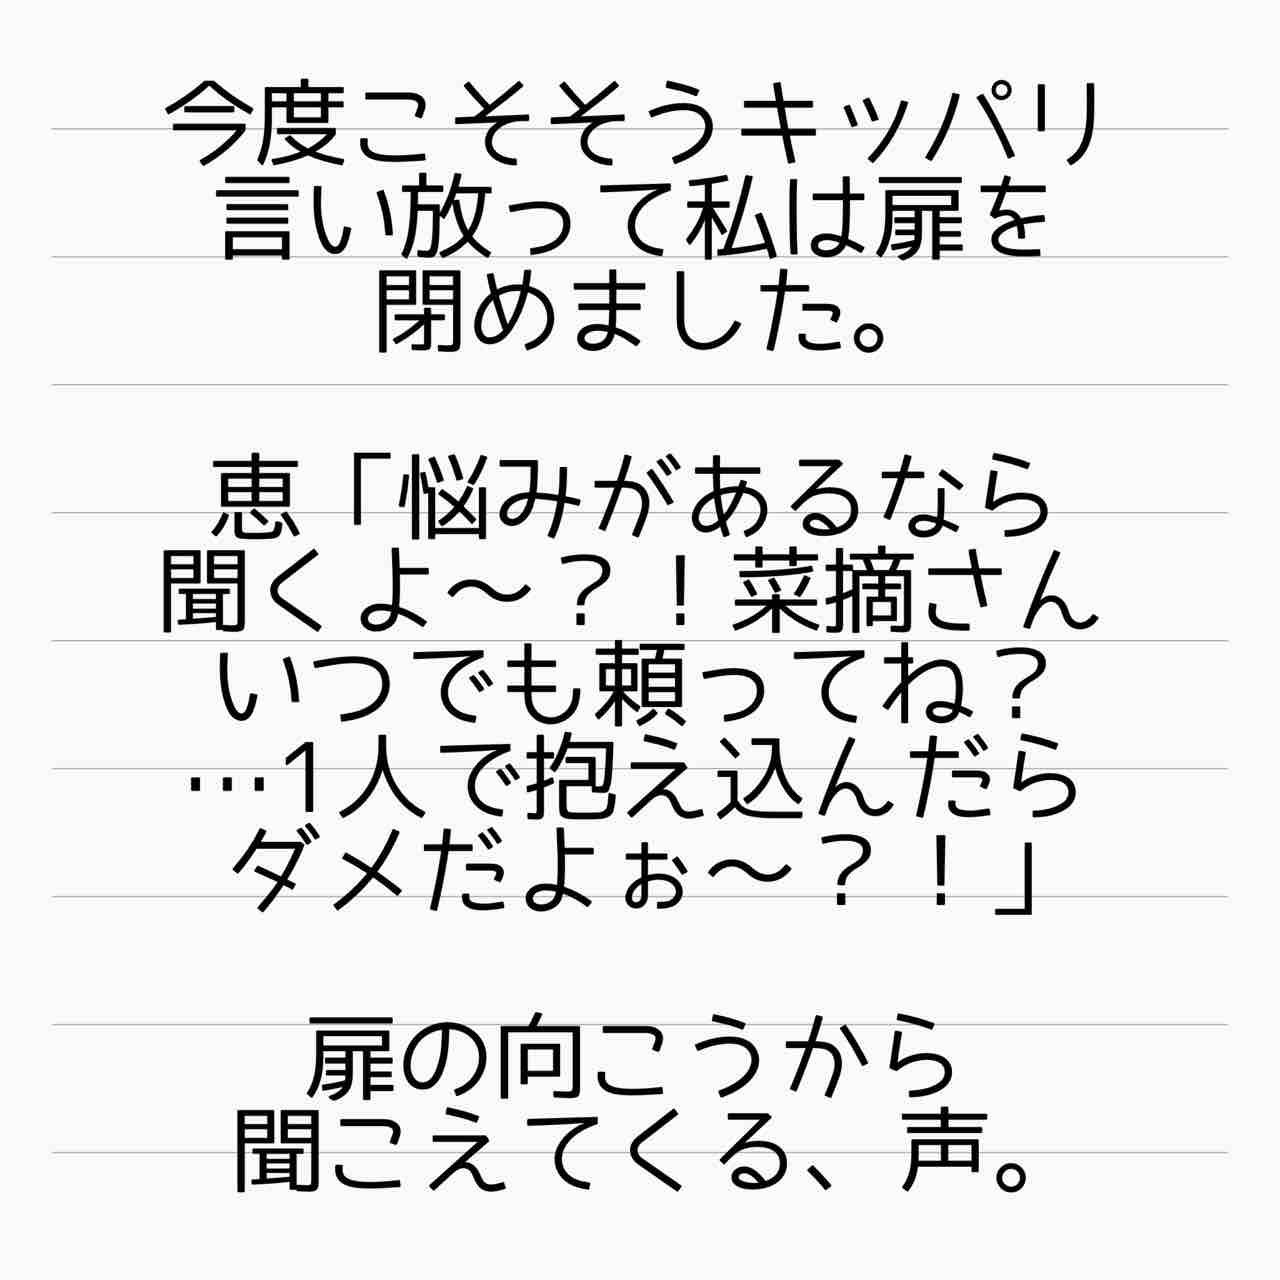 今度こそそうキッパリ
言い放って私は扉を
閉めました。
恵「悩みがあるなら
聞くよ〜？！菜摘さん
いつでも頼ってね？
…1人で抱え込んだら
ダメだよぉ〜？！」
扉の向こうから
聞こえてくる、声。